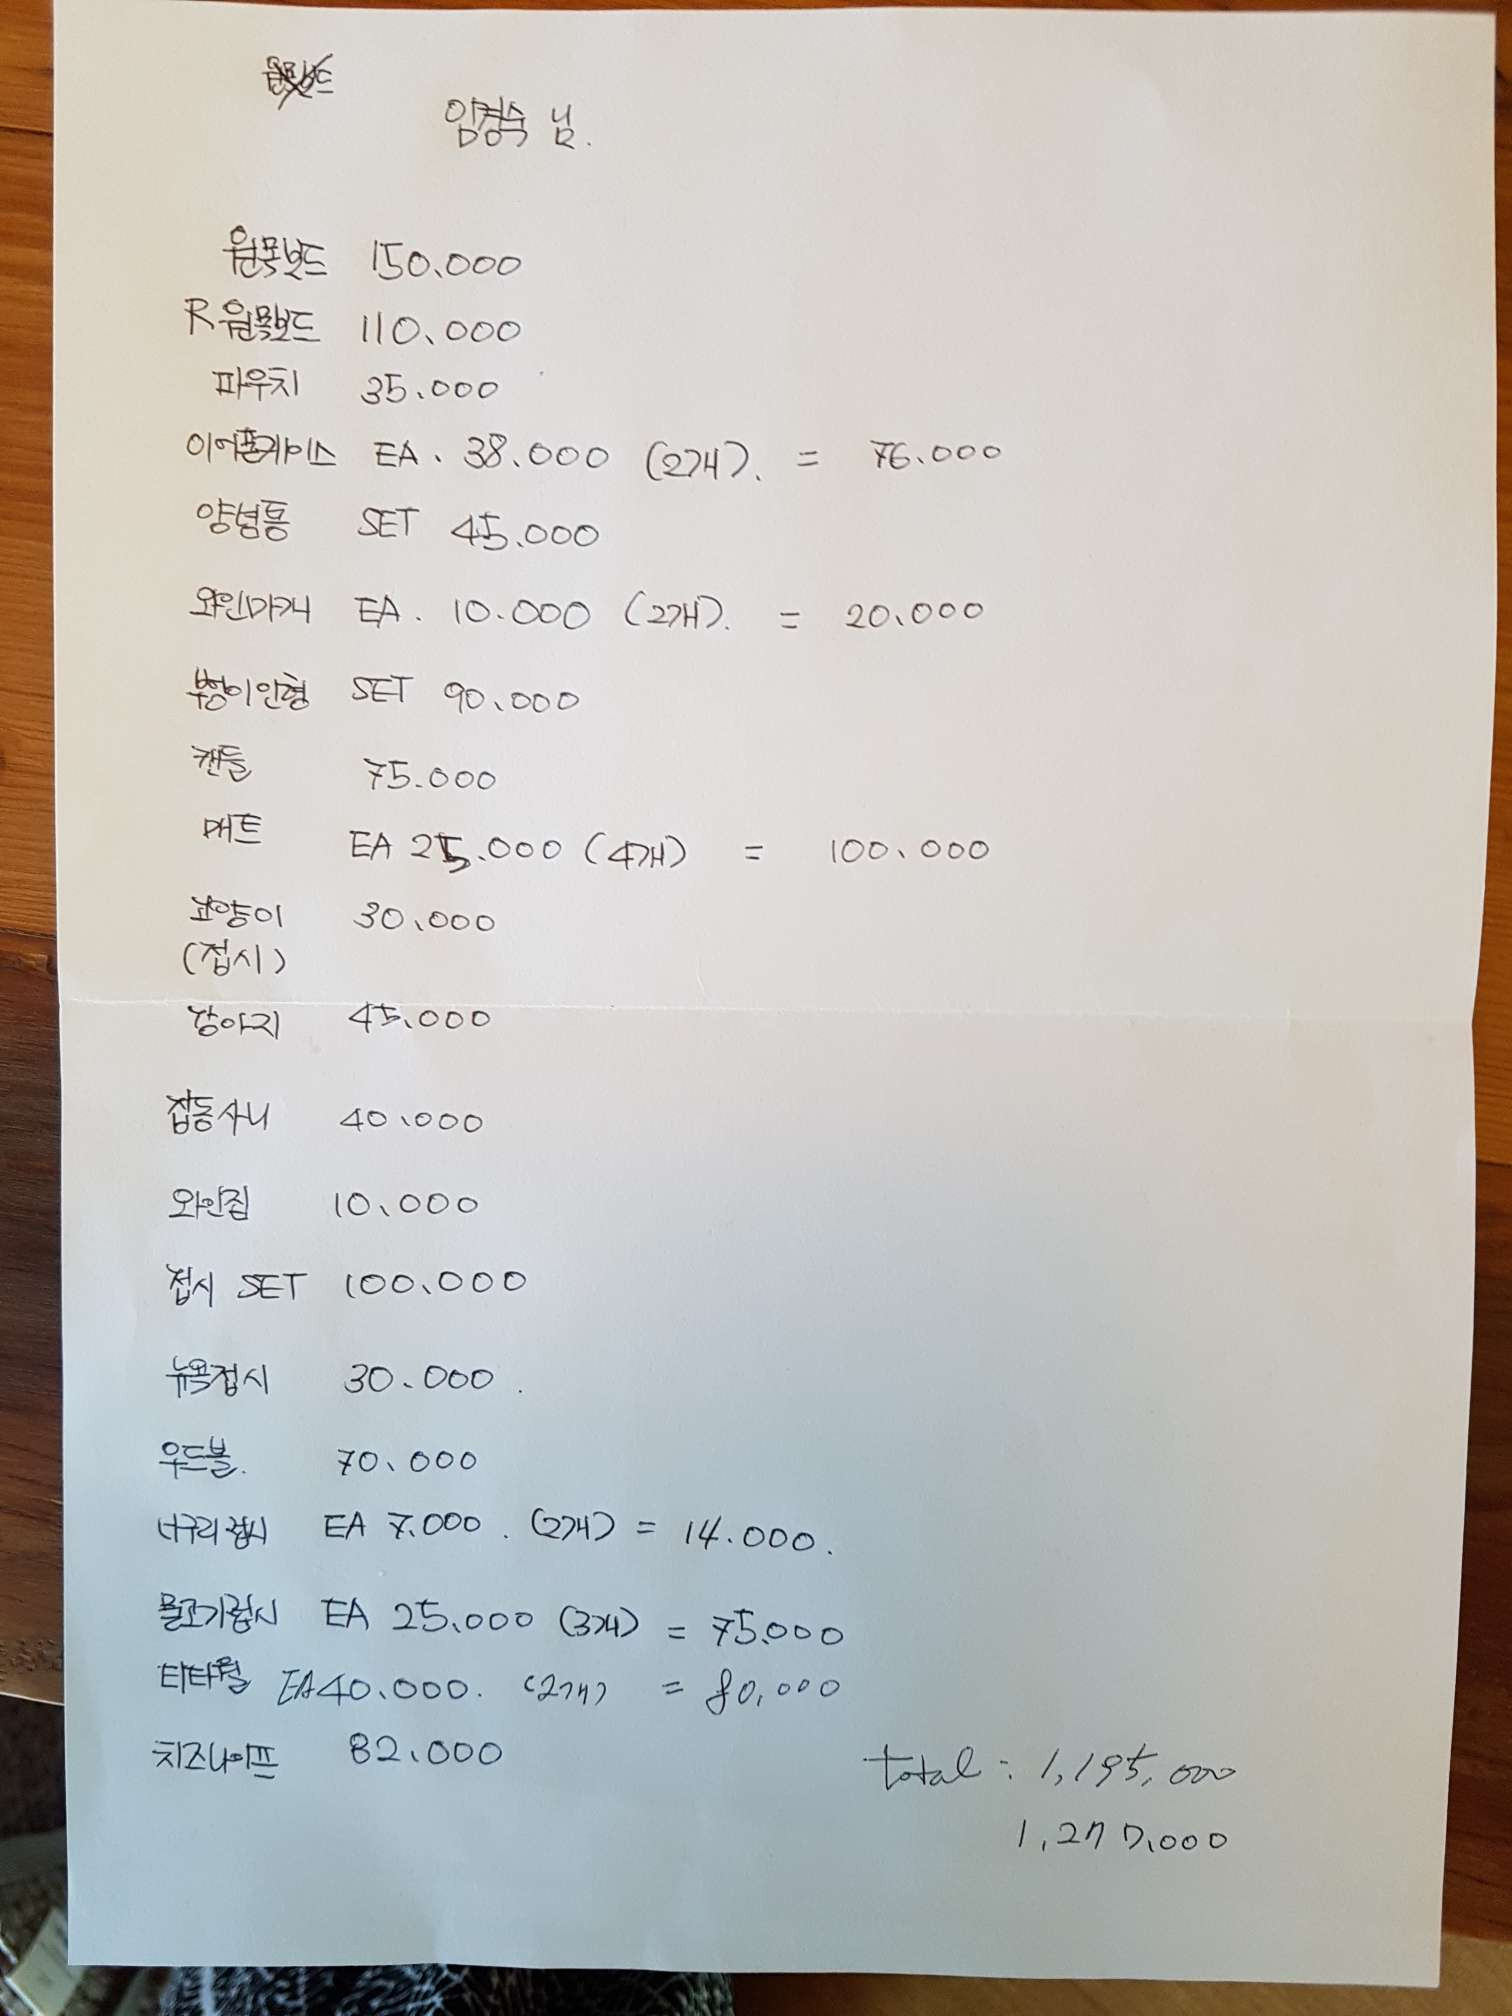 원목보드
임경숙 님.
원목보드 150.000
R원목보드 110.000
파우치 35.000
이어폰케이스 EA. 38.000 (2개). = 76.000
양념통 SET 45.000
와인마커 EA. 10.000 (2개). = 20.000
부엉이인형 SET 90.000
캔들 75.000
매트 EA 25.000 (4개) = 100.000
고양이 30.000
(접시)
강아지 45.000
잡동사니 40.000
와인집 10.000
접시 SET 100.000
뉴욕접시 30.000.
우드볼. 70.000
너구리접시 EA 7.000. (2개) = 14.000.
물고기접시 EA 25.000 (3개) = 75.000
티타월 EA 40.000. (2개) = 80,000
치즈나이프 82.000
total : 1,195,000
1,277,000